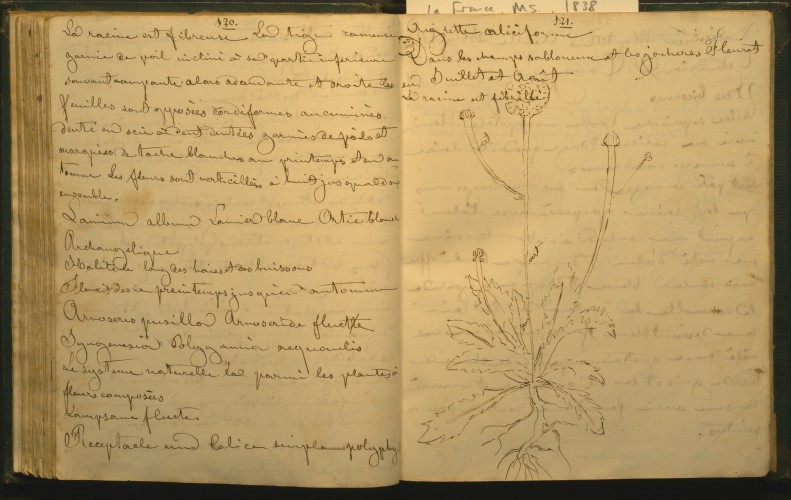 120.
La racine est fibreuse La tige rameuse
garnie de poil incliné à sa partie inférieure
souvant rampante alors ascendante et droite les
feuilles sont opposées cordiformes accuminés
denté en scie à dent dentées garnies de poils et
marquées de tache blanches au printemps et en au
tomne les fleurs sont verticillées à huit jusqua
ensemble.
Lamium album Lamier blanc Ortie blanche
Archangélique
Habite le long des haies et des buissons
Fleurit des le printemps jusqu'en automne
Arnoseris pusilla Arnoseride fluette
Syngenesie Polygamia aequalis
Le système naturelle la parmi les plantes à
fleurs composées
Lampsane fluette
Receptacle nud Calice simple polyphy
la France MS. 1838
121.
Aigrette caliciforme
Dans les champs sabloneux et les jachères Fleurit
en Juillet et Août
La racine est fibrille